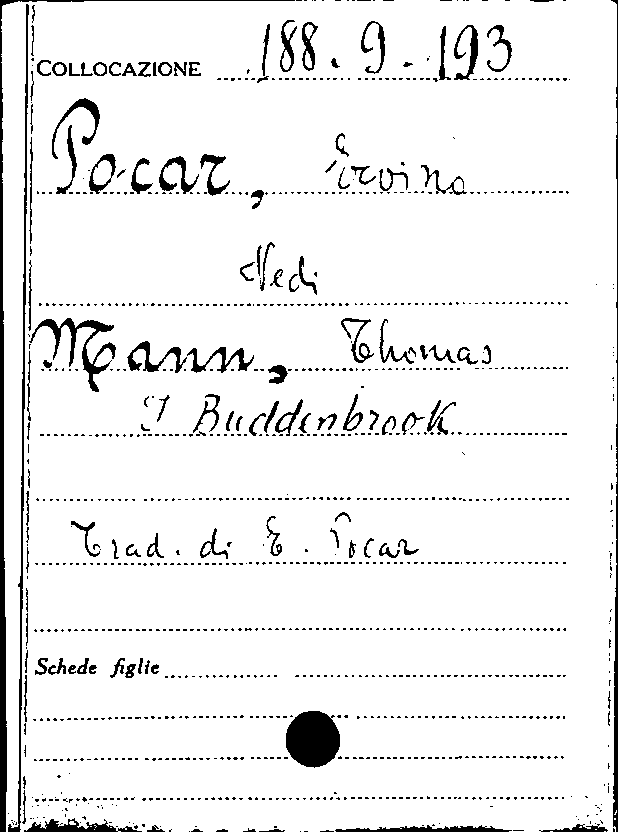 COLLOCAZIONE 188.9.193
Pocar, Ervino
Vedi
Mann, Thomas
I Buddenbrook
Trad. di E. Pocar
Schede figlie